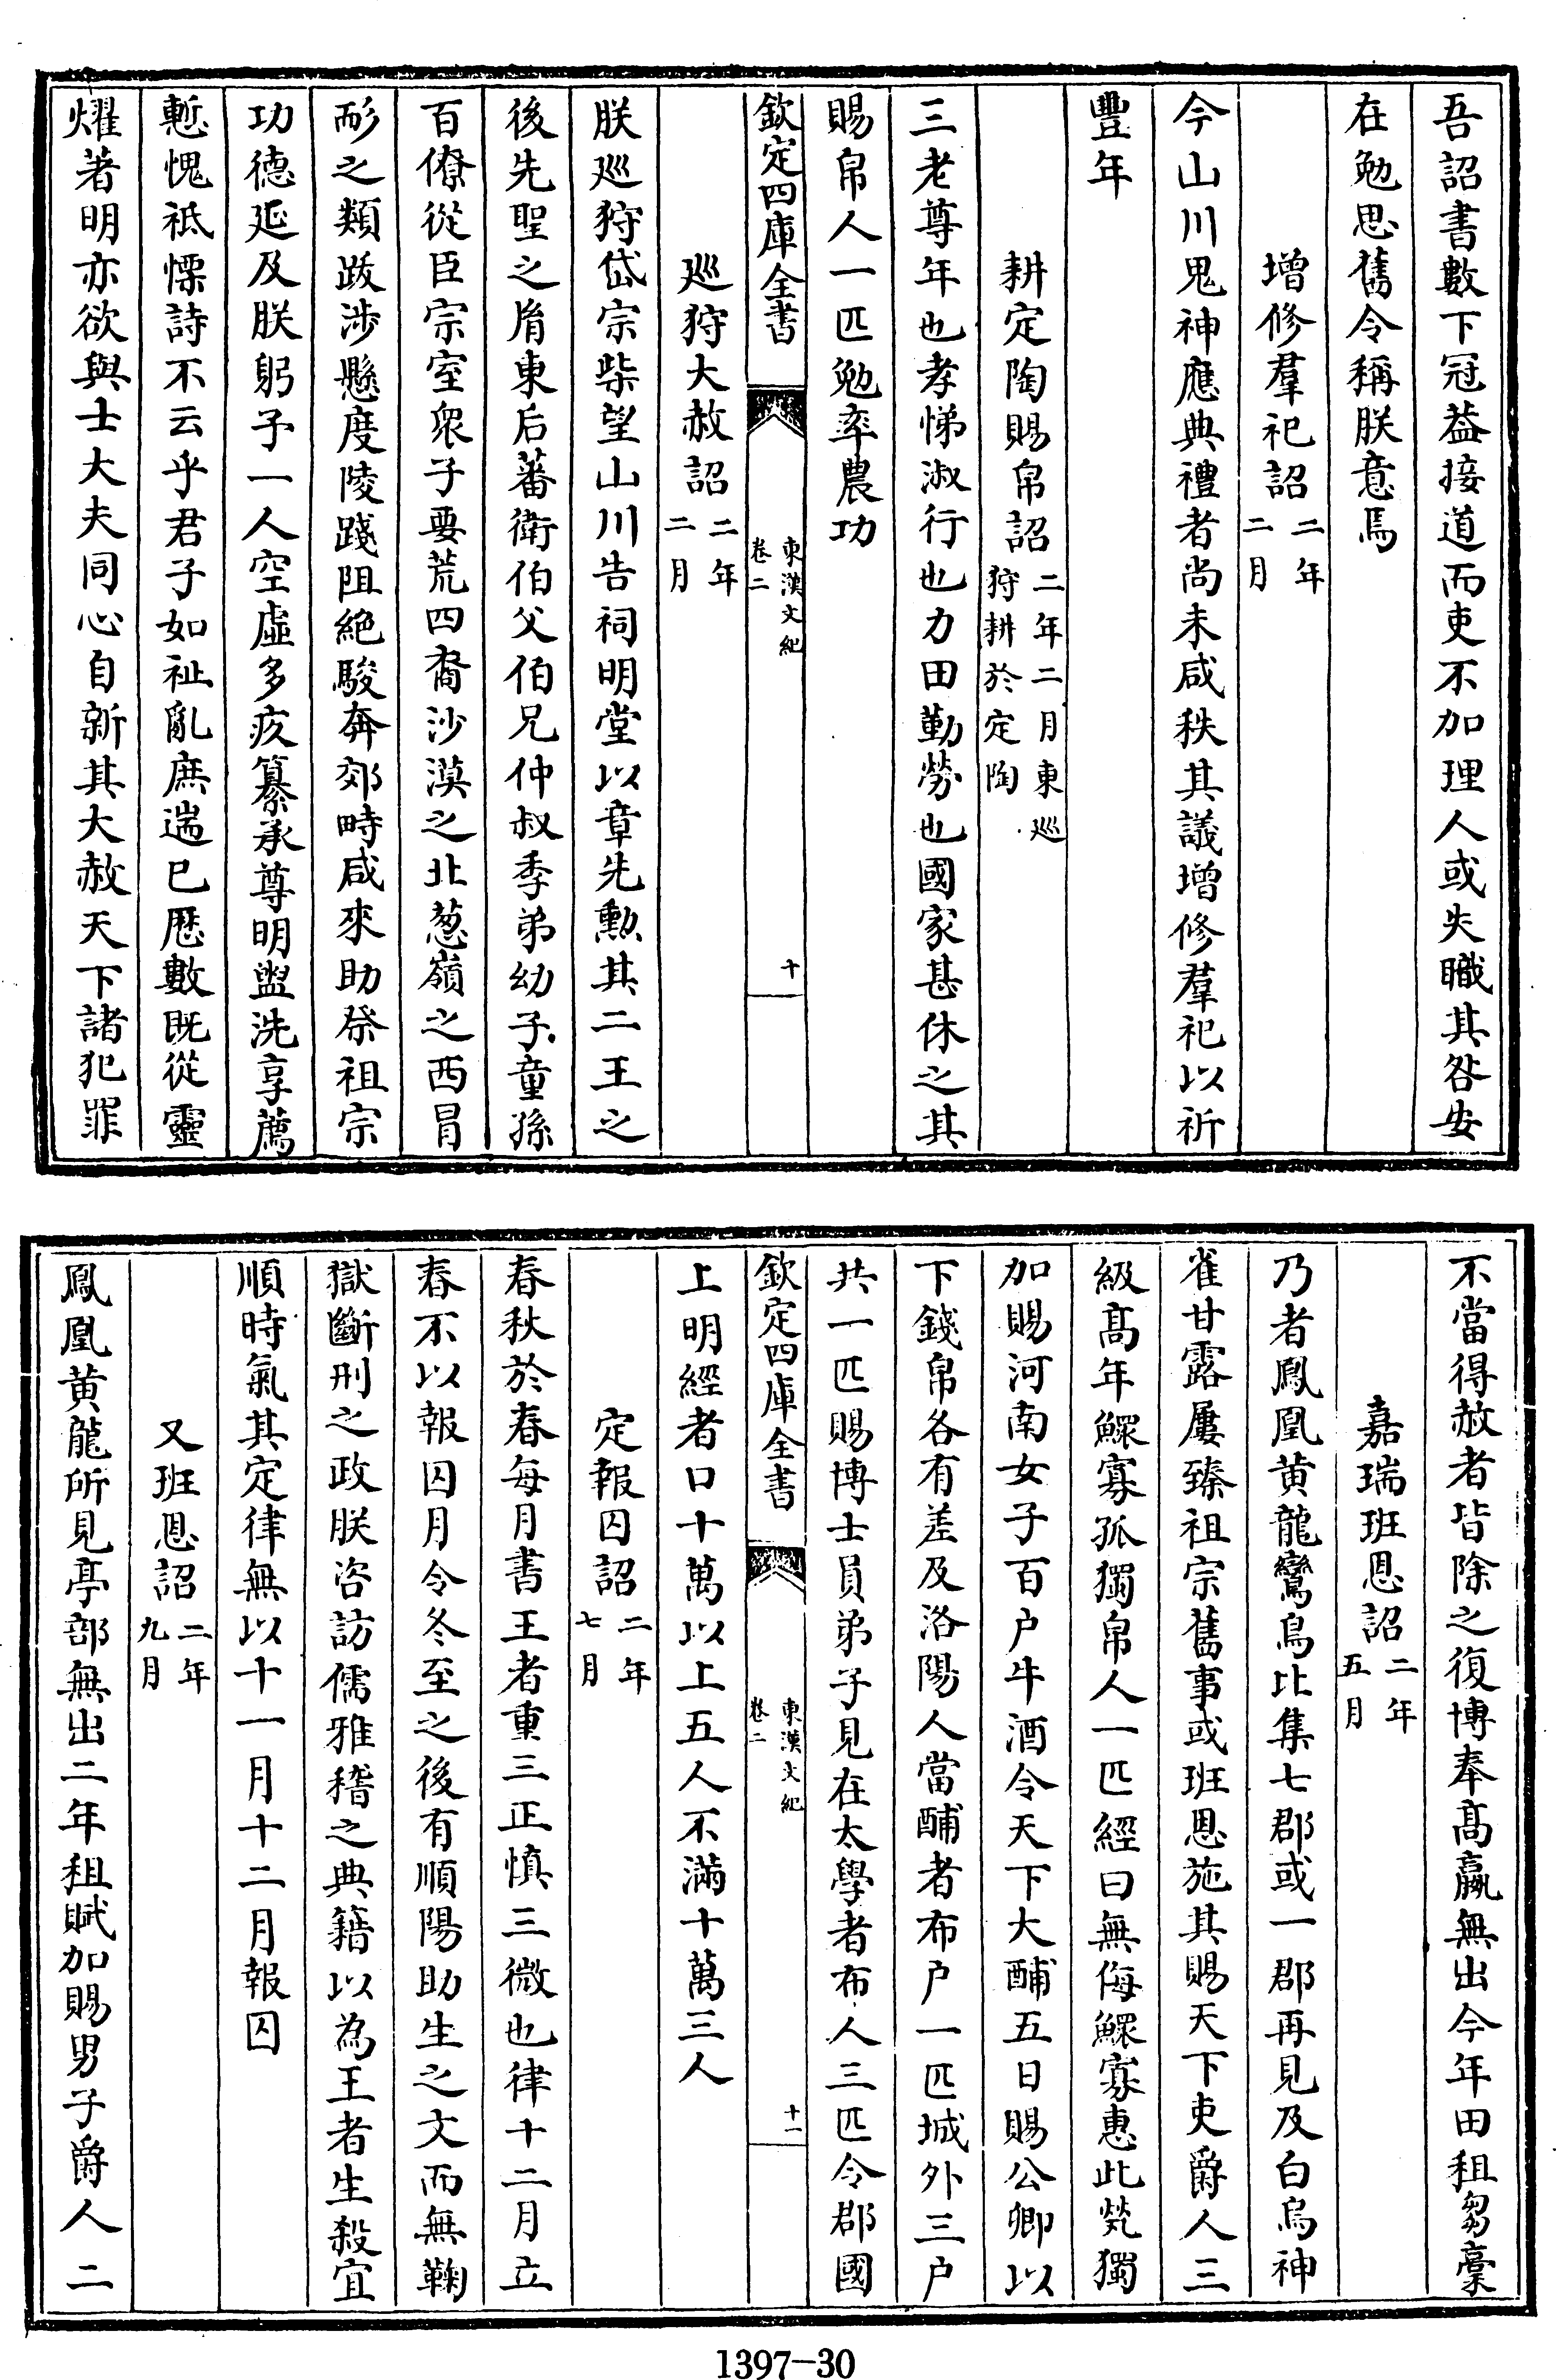 吾詔書數下冠葢接道而吏不加理人或失職其咎安
在勉思舊令稱朕意焉
增修羣祀詔二年二月
今山川鬼神應典禮者尚未咸秩其議增修羣祀以祈
豐年
耕定陶賜帛詔二年二月東巡狩耕於定陶
三老尊年也孝悌淑行也力田勤勞也國家甚休之其
賜帛人一匹勉率農功
欽定四庫全書 東漢文紀 卷二 十
巡狩大赦詔二年二月
朕巡狩岱宗柴望山川告祠明堂以章先勲其二王之
後先聖之胤東后蕃衛伯父伯兄仲叔季弟幼子童孫
百僚從臣宗室衆子要荒四裔沙漠之北葱嶺之西冒
耏之類跋涉懸度陵踐阻絶駿奔郊畤咸來助祭祖宗
功德延及朕躬予一人空虚多疚纂承尊明盥洗享薦
慙愧祗慄詩不云乎君子如祉亂庶遄已厯數既從靈
燿著明亦欲與士大夫同心自新其大赦天下諸犯罪
不當得赦者皆除之復博奉髙嬴無出今年田租芻藁
嘉瑞班恩詔二年五月
乃者鳳凰黄龍鸞鳥比集七郡或一郡再見及白烏神
雀甘露屢臻祖宗舊事或班恩施其賜天下吏爵人三
級髙年鰥寡孤獨帛人一匹經曰無侮鰥寡惠此煢獨
加賜河南女子百户牛酒令天下大酺五日賜公卿以
下錢帛各有差及洛陽人當酺者布户一匹城外三户
共一匹賜博士員弟子見在太學者布人三匹令郡國
欽定四庫全書 東漢文紀 卷二 十一
上明經者口十萬以上五人不滿十萬三人
定報囚詔二年七月
春秋於春每月書王者重三正慎三微也律十二月立
春不以報囚月令冬至之後有順陽助生之文而無鞠
獄斷刑之政朕咨訪儒雅稽之典籍以為王者生殺宜
順時氣其定律無以十一月十二月報囚
又班恩詔二年九月
鳳凰黄龍所見亭部無出二年租賦加賜男子爵人二
1397-30